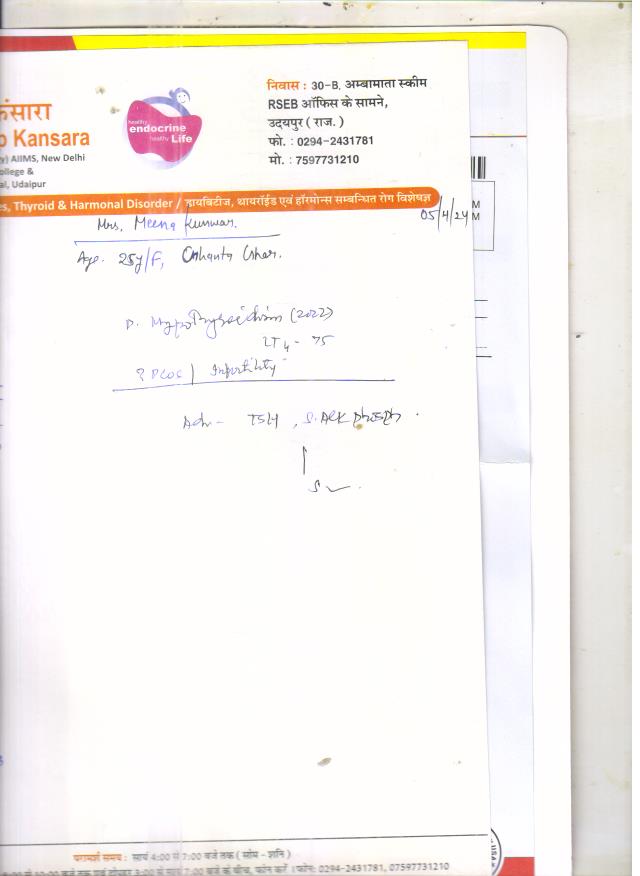 निवास : 30-B, अम्बामाता स्कीम
RSEB ऑफिस के सामने,
उदयपुर ( राज. )
फो. : 0294-2431781
मो. : 7597731210
कंसारा
Kansara
AIIMS, New Delhi
ollege &
al, Udaipur
healthy
endocrine
healthy Life
es, Thyroid & Harmonal Disorder / डायबिटीज, थायरॉईड एवं हॉरमोन्स सम्बन्धित रोग विशेषज्ञ
05/4/24
M
M
Mrs. Meena Kunwar.
Age. 25y/F,
D. Hypothyroidism (2022)
LT4 - 75
? PCOS / Infertility
Adv - TSH, S. Alk phosph.
परामर्श समय : सायं 4:00 से 7:00 बजे तक ( सोम - शनि )
से 7:00 बजे के बीच, फोन करें । फोन: 0294-2431781, 07597731210